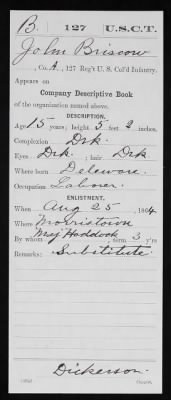 B. 127 U.S.C.T.
John Briscow
, Co. A, 127 Reg't U. S. Col'd Infantry.
Appears on
Company Descriptive Book
of the organization named above.
DESCRIPTION.
Age 15 years; height 5 feet 2 inches.
Complexion Drk.
Eyes Drk. ; hair Drk
Where born Delaware.
Occupation Laborer.
ENLISTMENT.
When Aug 25 , 1864
Where Morristown
By whom Maj Haddock ; term 3 y'rs
Remarks: Substitute
Dickerson.
Copyist.